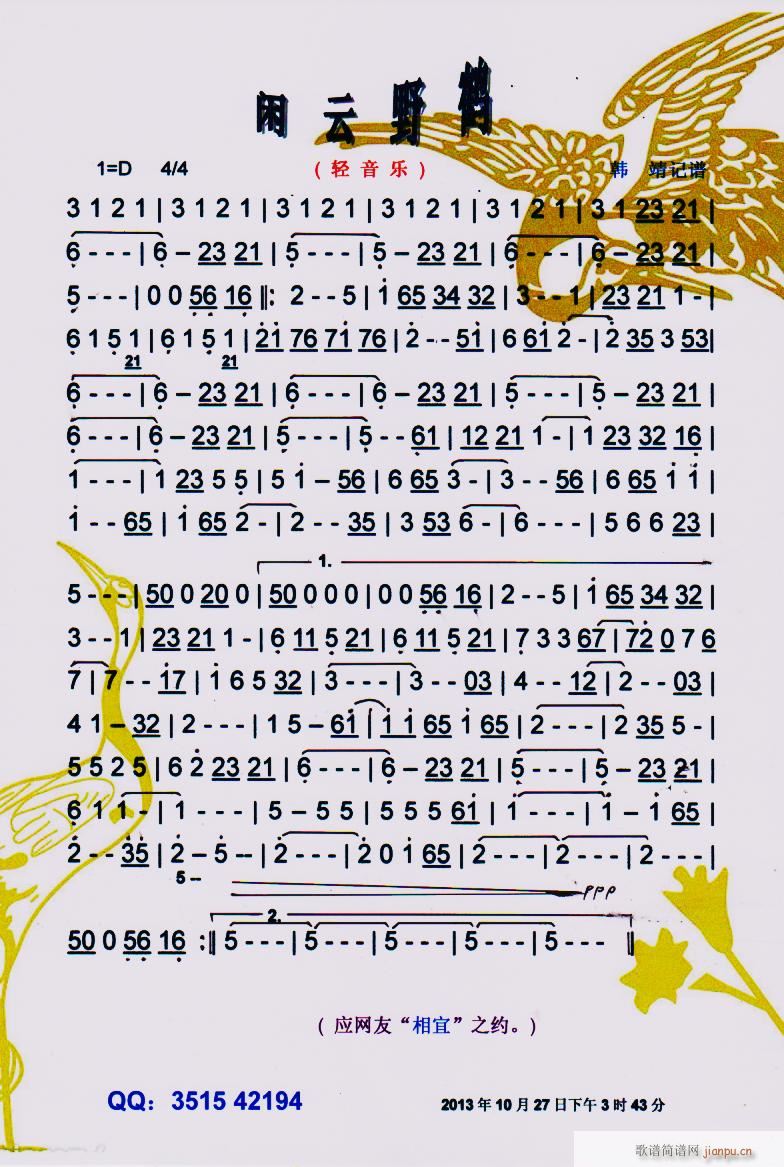 闲云野鹤
1=D 4/4 (轻音乐) 韩 靖记谱
3 1 2 1 | 3 1 2 1 | 3 1 2 1 | 3 1 2 1 | 3 1 2 1 | 3 1 23 21 |
6 - - - | 6 - 23 21 | 5 - - - | 5 - 23 21 | 6 - - - | 6 - 23 21 |
5 - - - | 0 0 56 16 ‖: 2 - - 5 | 1 65 34 32 | 3 - - 1 | 23 21 1 - |
6 1 5 1 | 6 1 5 1 | 21 76 71 76 | 2 - - 51 | 6 61 2 - | 2 35 3 53 |
21 21
6 - - - | 6 - 23 21 | 6 - - - | 6 - 23 21 | 5 - - - | 5 - 23 21 |
6 - - - | 6 - 23 21 | 5 - - - | 5 - - 61 | 12 21 1 - | 1 23 32 16 |
1 - - - | 1 23 5 5 | 5 1 - 56 | 6 65 3 - | 3 - - 56 | 6 65 1 1 |
1 - - 65 | 1 65 2 - | 2 - - 35 | 3 53 6 - | 6 - - - | 5 6 6 23 |
1.
5 - - - | 50 0 20 0 | 50 0 0 0 | 0 0 56 16 | 2 - - 5 | 1 65 34 32 |
3 - - 1 | 23 21 1 - | 6 11 5 21 | 6 11 5 21 | 7 3 3 67 | 72 0 7 6
7 | 7 - - 17 | 1 6 5 32 | 3 - - - | 3 - - 03 | 4 - - 12 | 2 - - 03 |
4 1 - 32 | 2 - - - | 1 5 - 61 | 1 1 65 1 65 | 2 - - - | 2 35 5 - |
5 5 2 5 | 6 2 23 21 | 6 - - - | 6 - 23 21 | 5 - - - | 5 - 23 21 |
6 1 1 - | 1 - - - | 5 - 5 5 | 5 5 5 61 | 1 - - - | 1 - 1 65 |
2 - - 35 | 2 - 5 - - | 2 - - - | 2 0 1 65 | 2 - - - | 2 - - - | 2 - - - |
5 - - ppp
2.
50 0 56 16 :‖ 5 - - - | 5 - - - | 5 - - - | 5 - - - | 5 - - - ‖
( 应网友“相宜”之约。)
QQ：3515 42194 2013 年 10 月 27 日下午 3 时 43 分
歌谱简谱网
jianpu.cn